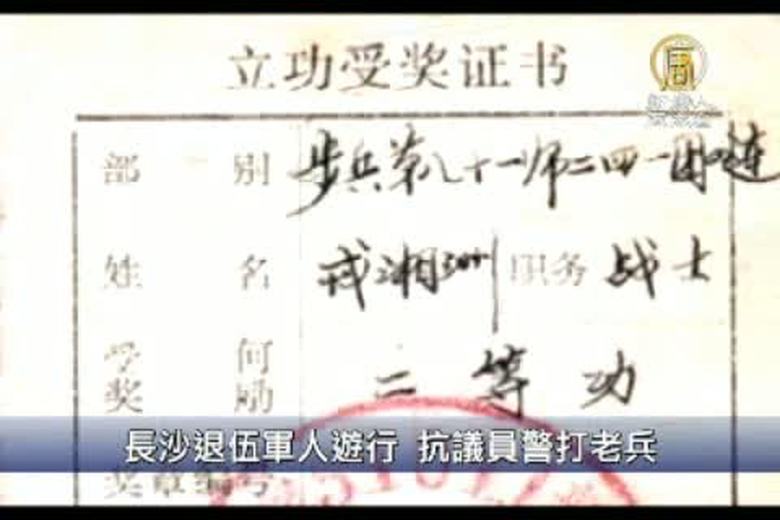 立功受奖证书
部别 步兵第八十一师二四一团 连
姓名 戎湘洲 职务 战士
受何
奖励 二等功
長沙退伍軍人遊行 抗議員警打老兵
奖章编号